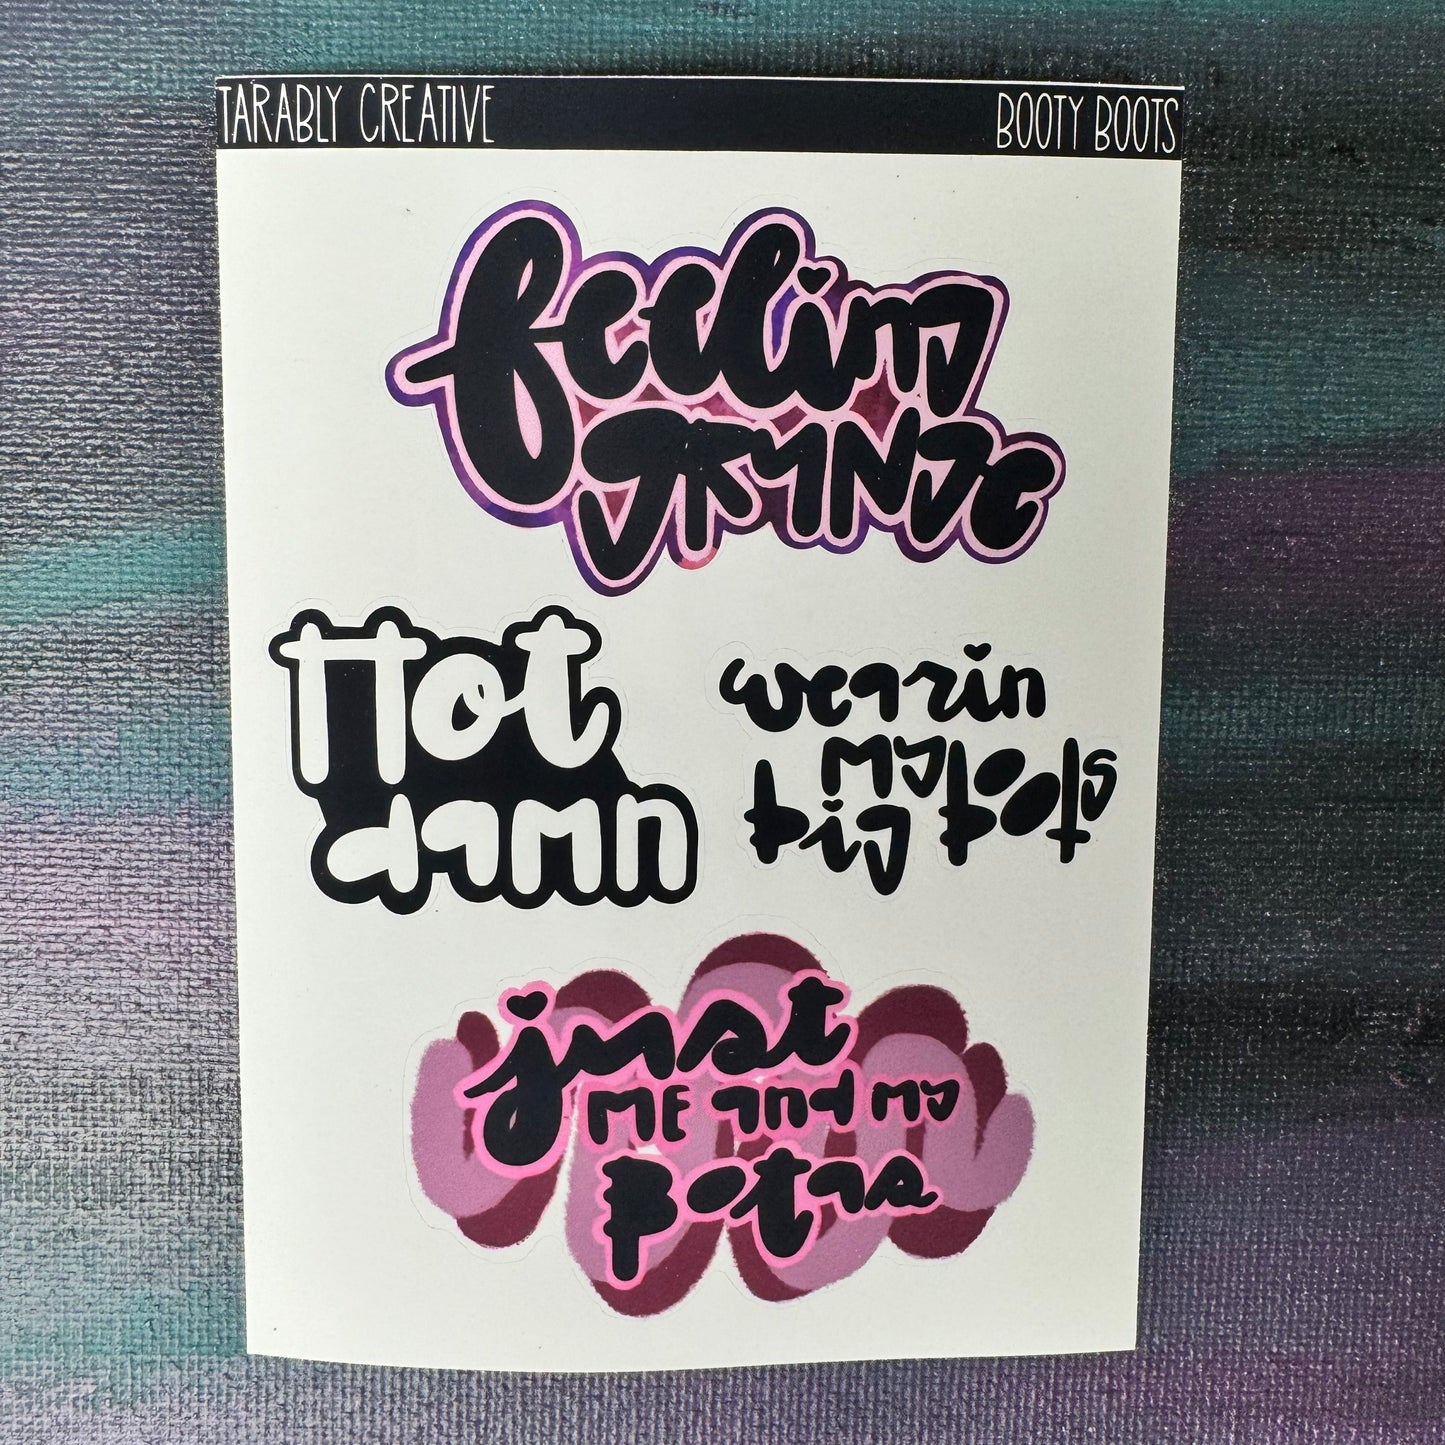 TARABLY CREATIVE
BOOTY BOOTS
feeling
GRUNGE
Hot
damn
wearin
my
big boots
just
ME and my
botas